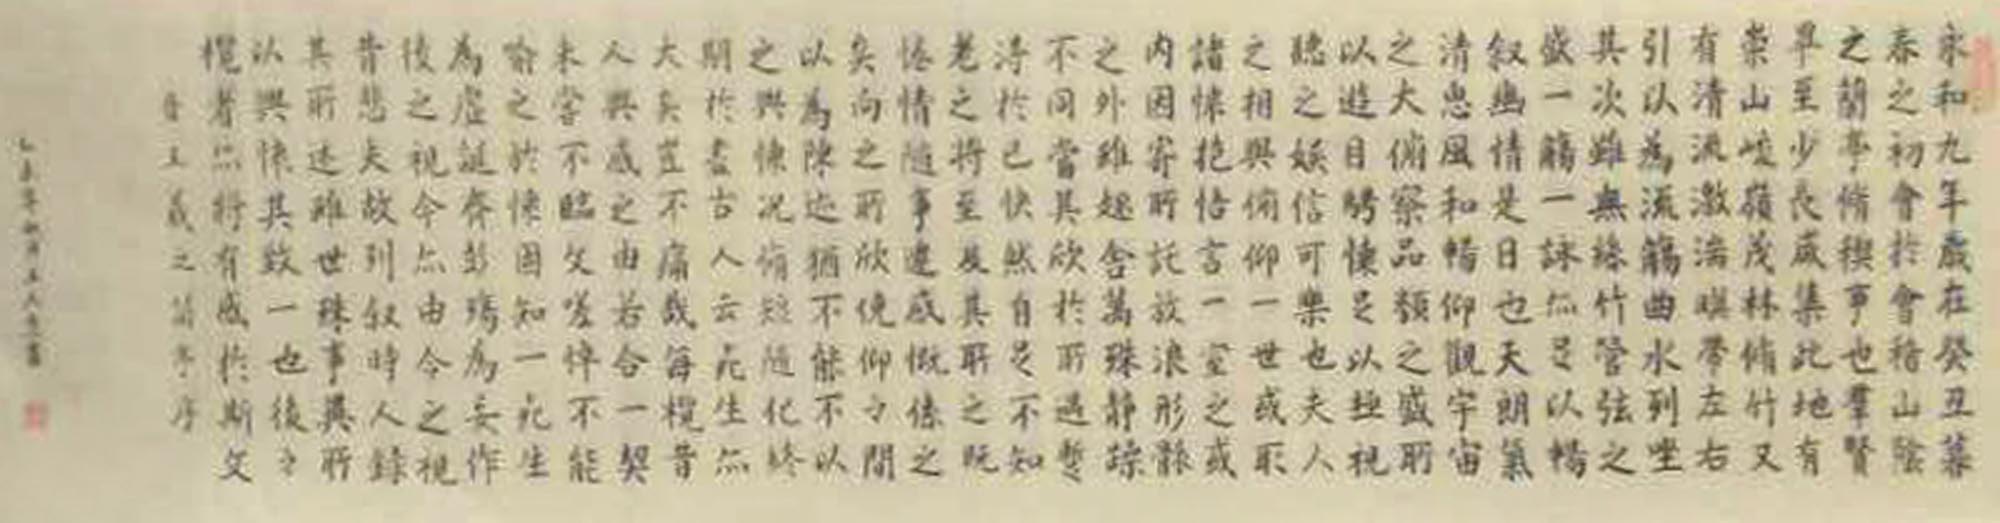 永和九年歲在癸丑暮
春之初會於會稽山陰
之蘭亭脩禊事也羣賢
畢至少長咸集此地有
崇山峻嶺茂林脩竹又
有清流激湍暎帶左右
引以為流觴曲水列坐
其次雖無絲竹管弦之
盛一觴一詠亦足以暢
叙幽情是日也天朗氣
清惠風和暢仰觀宇宙
之大俯察品類之盛所
以遊目騁懷足以極視
聽之娛信可樂也夫人
之相與俯仰一世或取
諸懷抱悟言一室之或
内因寄所託放浪形骸
之外雖趣舍萬殊靜躁
不同當其欣於所遇暫
得於己快然自足不知
老之將至及其所之既
惓情隨事遷感慨係之
矣向之所欣俛仰之間
以為陳迹猶不能不以
之興懷況脩短隨化終
期於盡古人云死生亦
大矣豈不痛哉每攬昔
人興感之由若合一契
未嘗不臨文嗟悼不能
喻之於懷固知一死生
為虛誕齊彭殤為妄作
後之視今亦由今之視
昔悲夫故列叙時人錄
其所述雖世殊事異所
以興懷其致一也後之
攬者亦將有感於斯文
晉王羲之蘭亭序